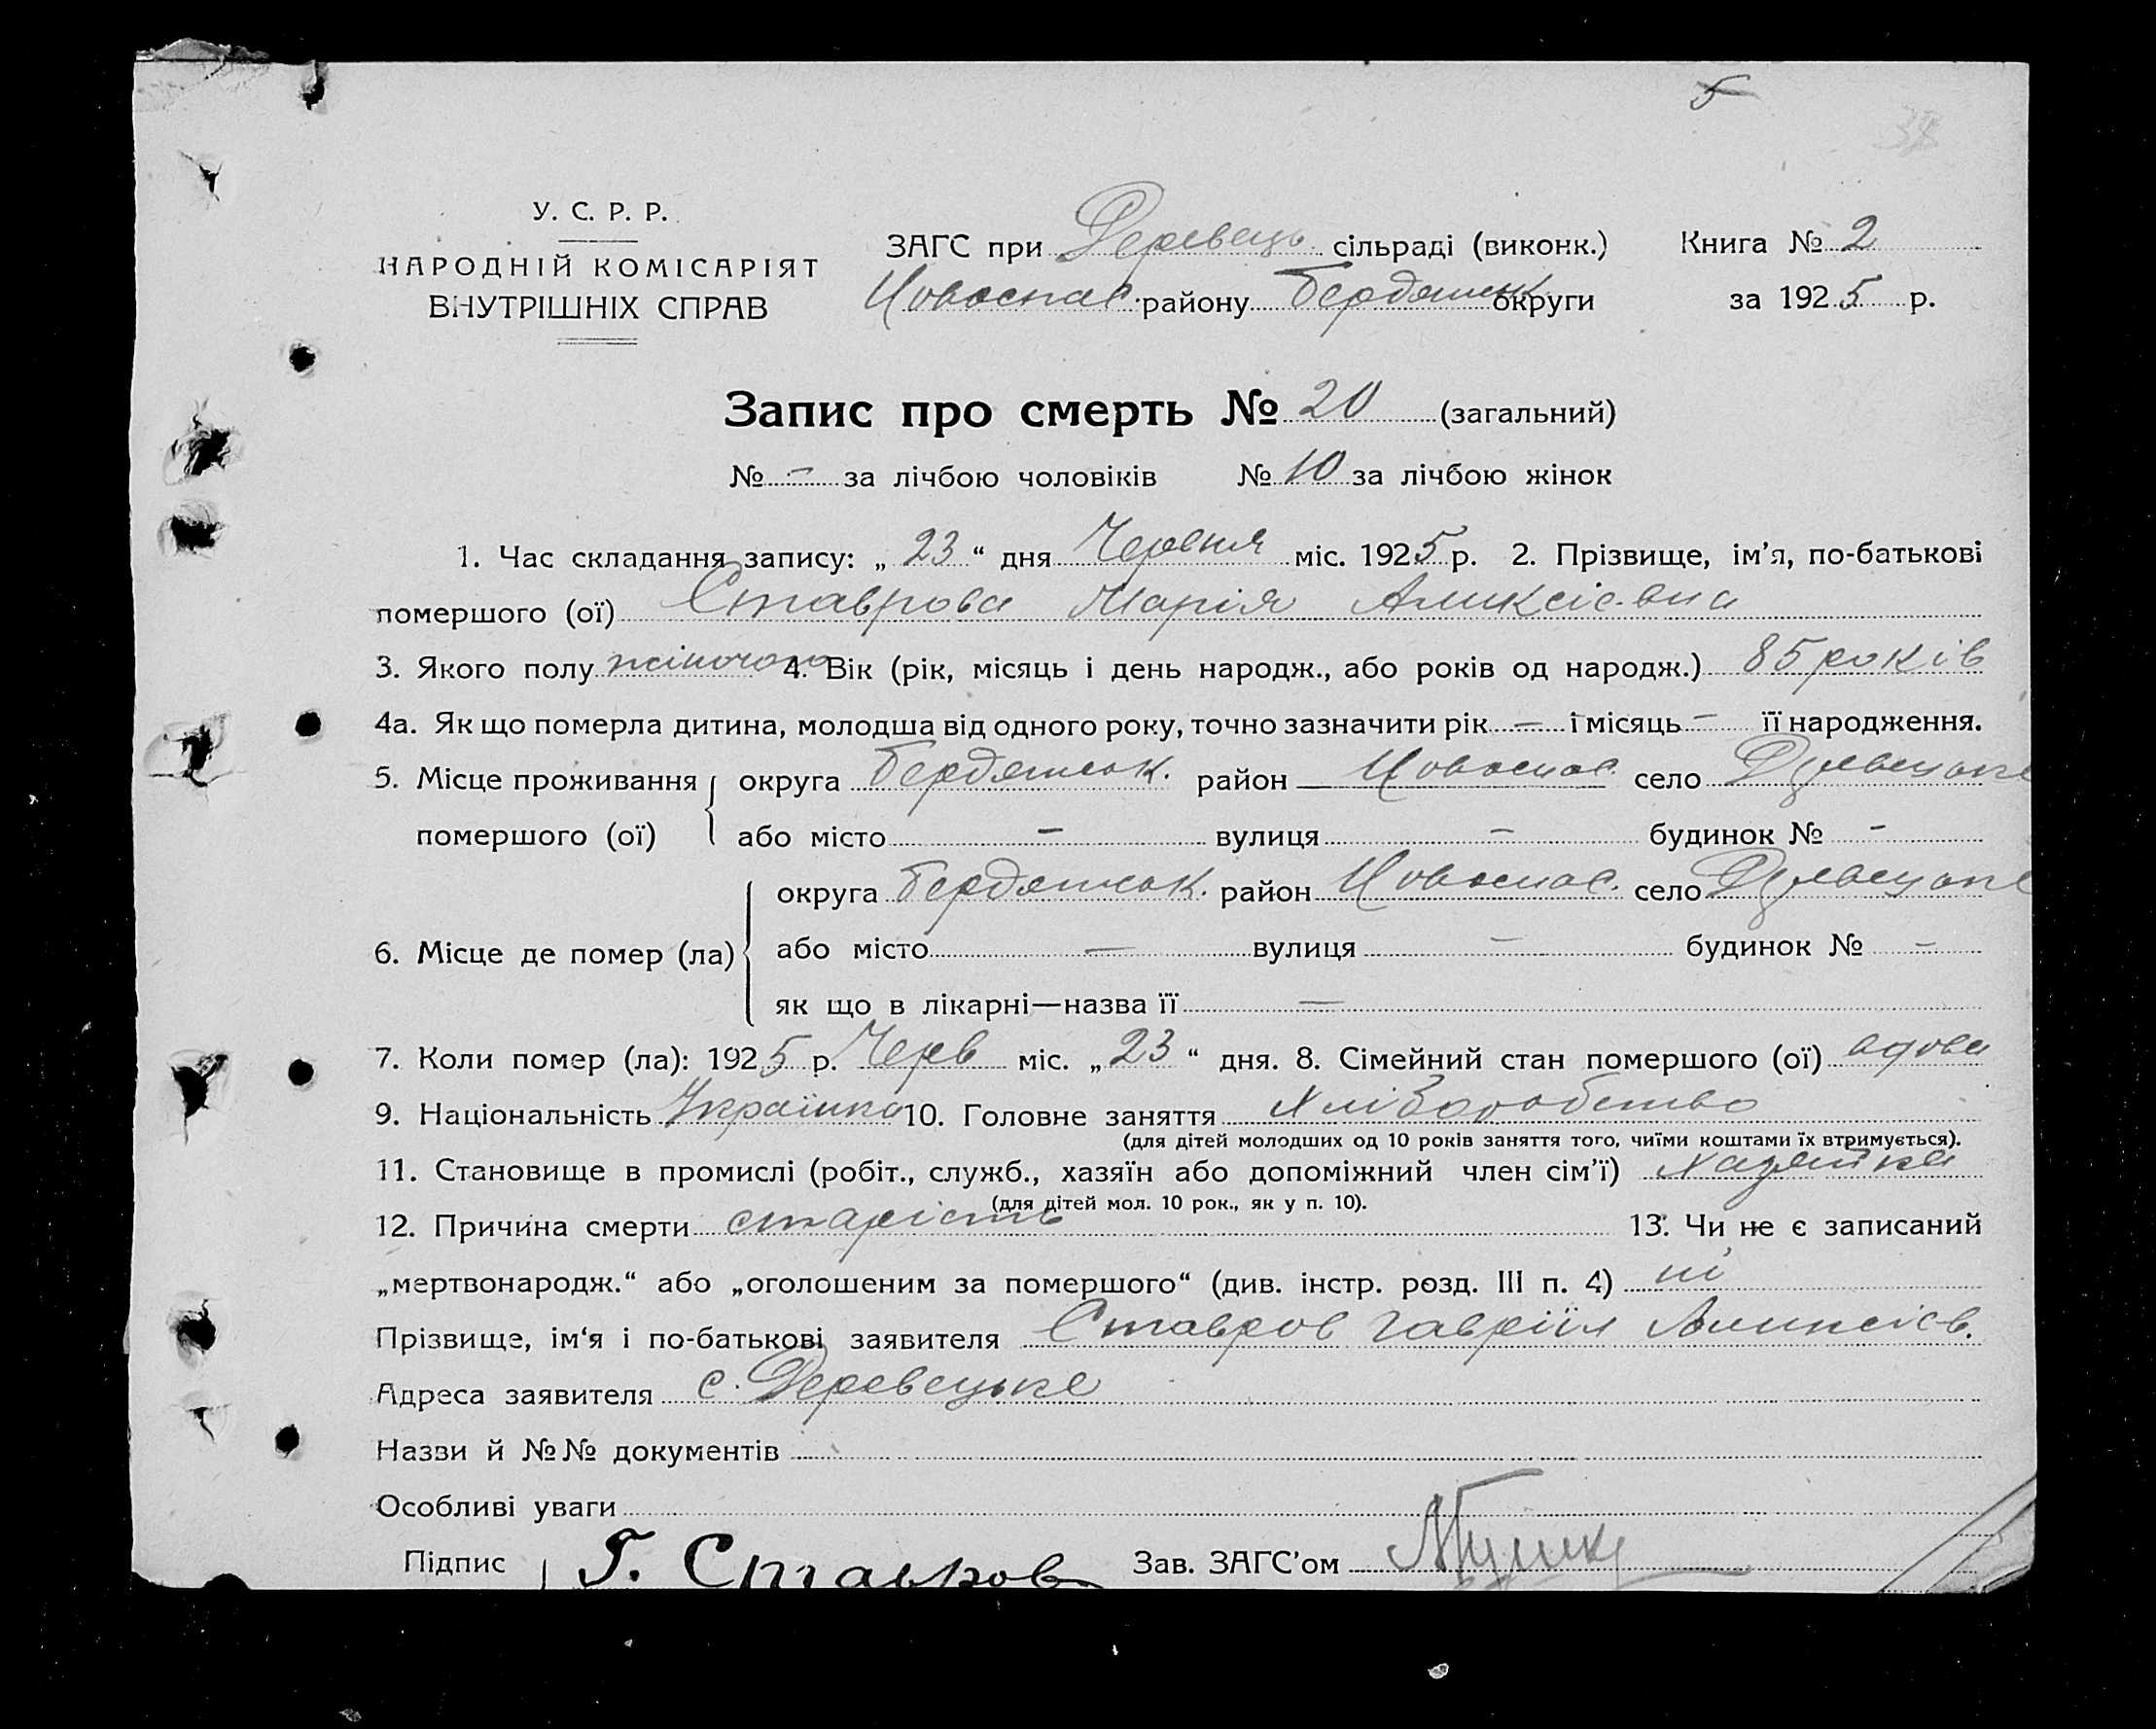 5
38
У. С. Р. Р.
НАРОДНІЙ КОМІСАРІЯТ
ВНУТРІШНІХ СПРАВ
ЗАГС при Деревець сільраді (виконк.) Книга № 2
Новоспас. району Бердянськ округи за 1925 р.
Запис про смерть № 20 (загальний)
№ – за лічбою чоловіків № 10 за лічбою жінок
1. Час складання запису: „ 23 “ дня Червня міс. 1925 р. 2. Прізвище, ім’я, по-батькові
помершого (ої) Ставрова Марія Аликсієвна
3. Якого полу жіночого 4. Вік (рік, місяць і день народж., або років од народж.) 85 років
4а. Як що померла дитина, молодша від одного року, точно зазначити рік — і місяць – її народження.
5. Місце проживання округа Бердянськ. район Новоспас. село
помершого (ої) або місто – вулиця – будинок № -
округа Бердянськ. район Новоспас. село
6. Місце де помер (ла) або місто — вулиця – будинок № –
як що в лікарні—назва її —
7. Коли помер (ла): 1925 р. Черв міс. „ 23 “ дня. 8. Сімейний стан помершого (ої) вдова
9. Національність Українка 10. Головне заняття Хліборобство
(для дітей молодших од 10 років заняття того, чиїми коштами їх втримується).
11. Становище в промислі (робіт., служб., хазяїн або допоміжний член сім’ї) Хазяйка
(для дітей мол. 10 рок., як у п. 10).
12. Причина смерти старість 13. Чи не є записаний
„мертвонародж.“ або „оголошеним за помершого“ (див. інстр. розд. III п. 4) ні
Прізвище, ім‘я і по-батькові заявителя Ставров Гавріїл Аликсієв.
Адреса заявителя с. Деревецьке
Назви й №№ документів
Особливі уваги
Підпис Г. Ставров Зав. ЗАГС’ом